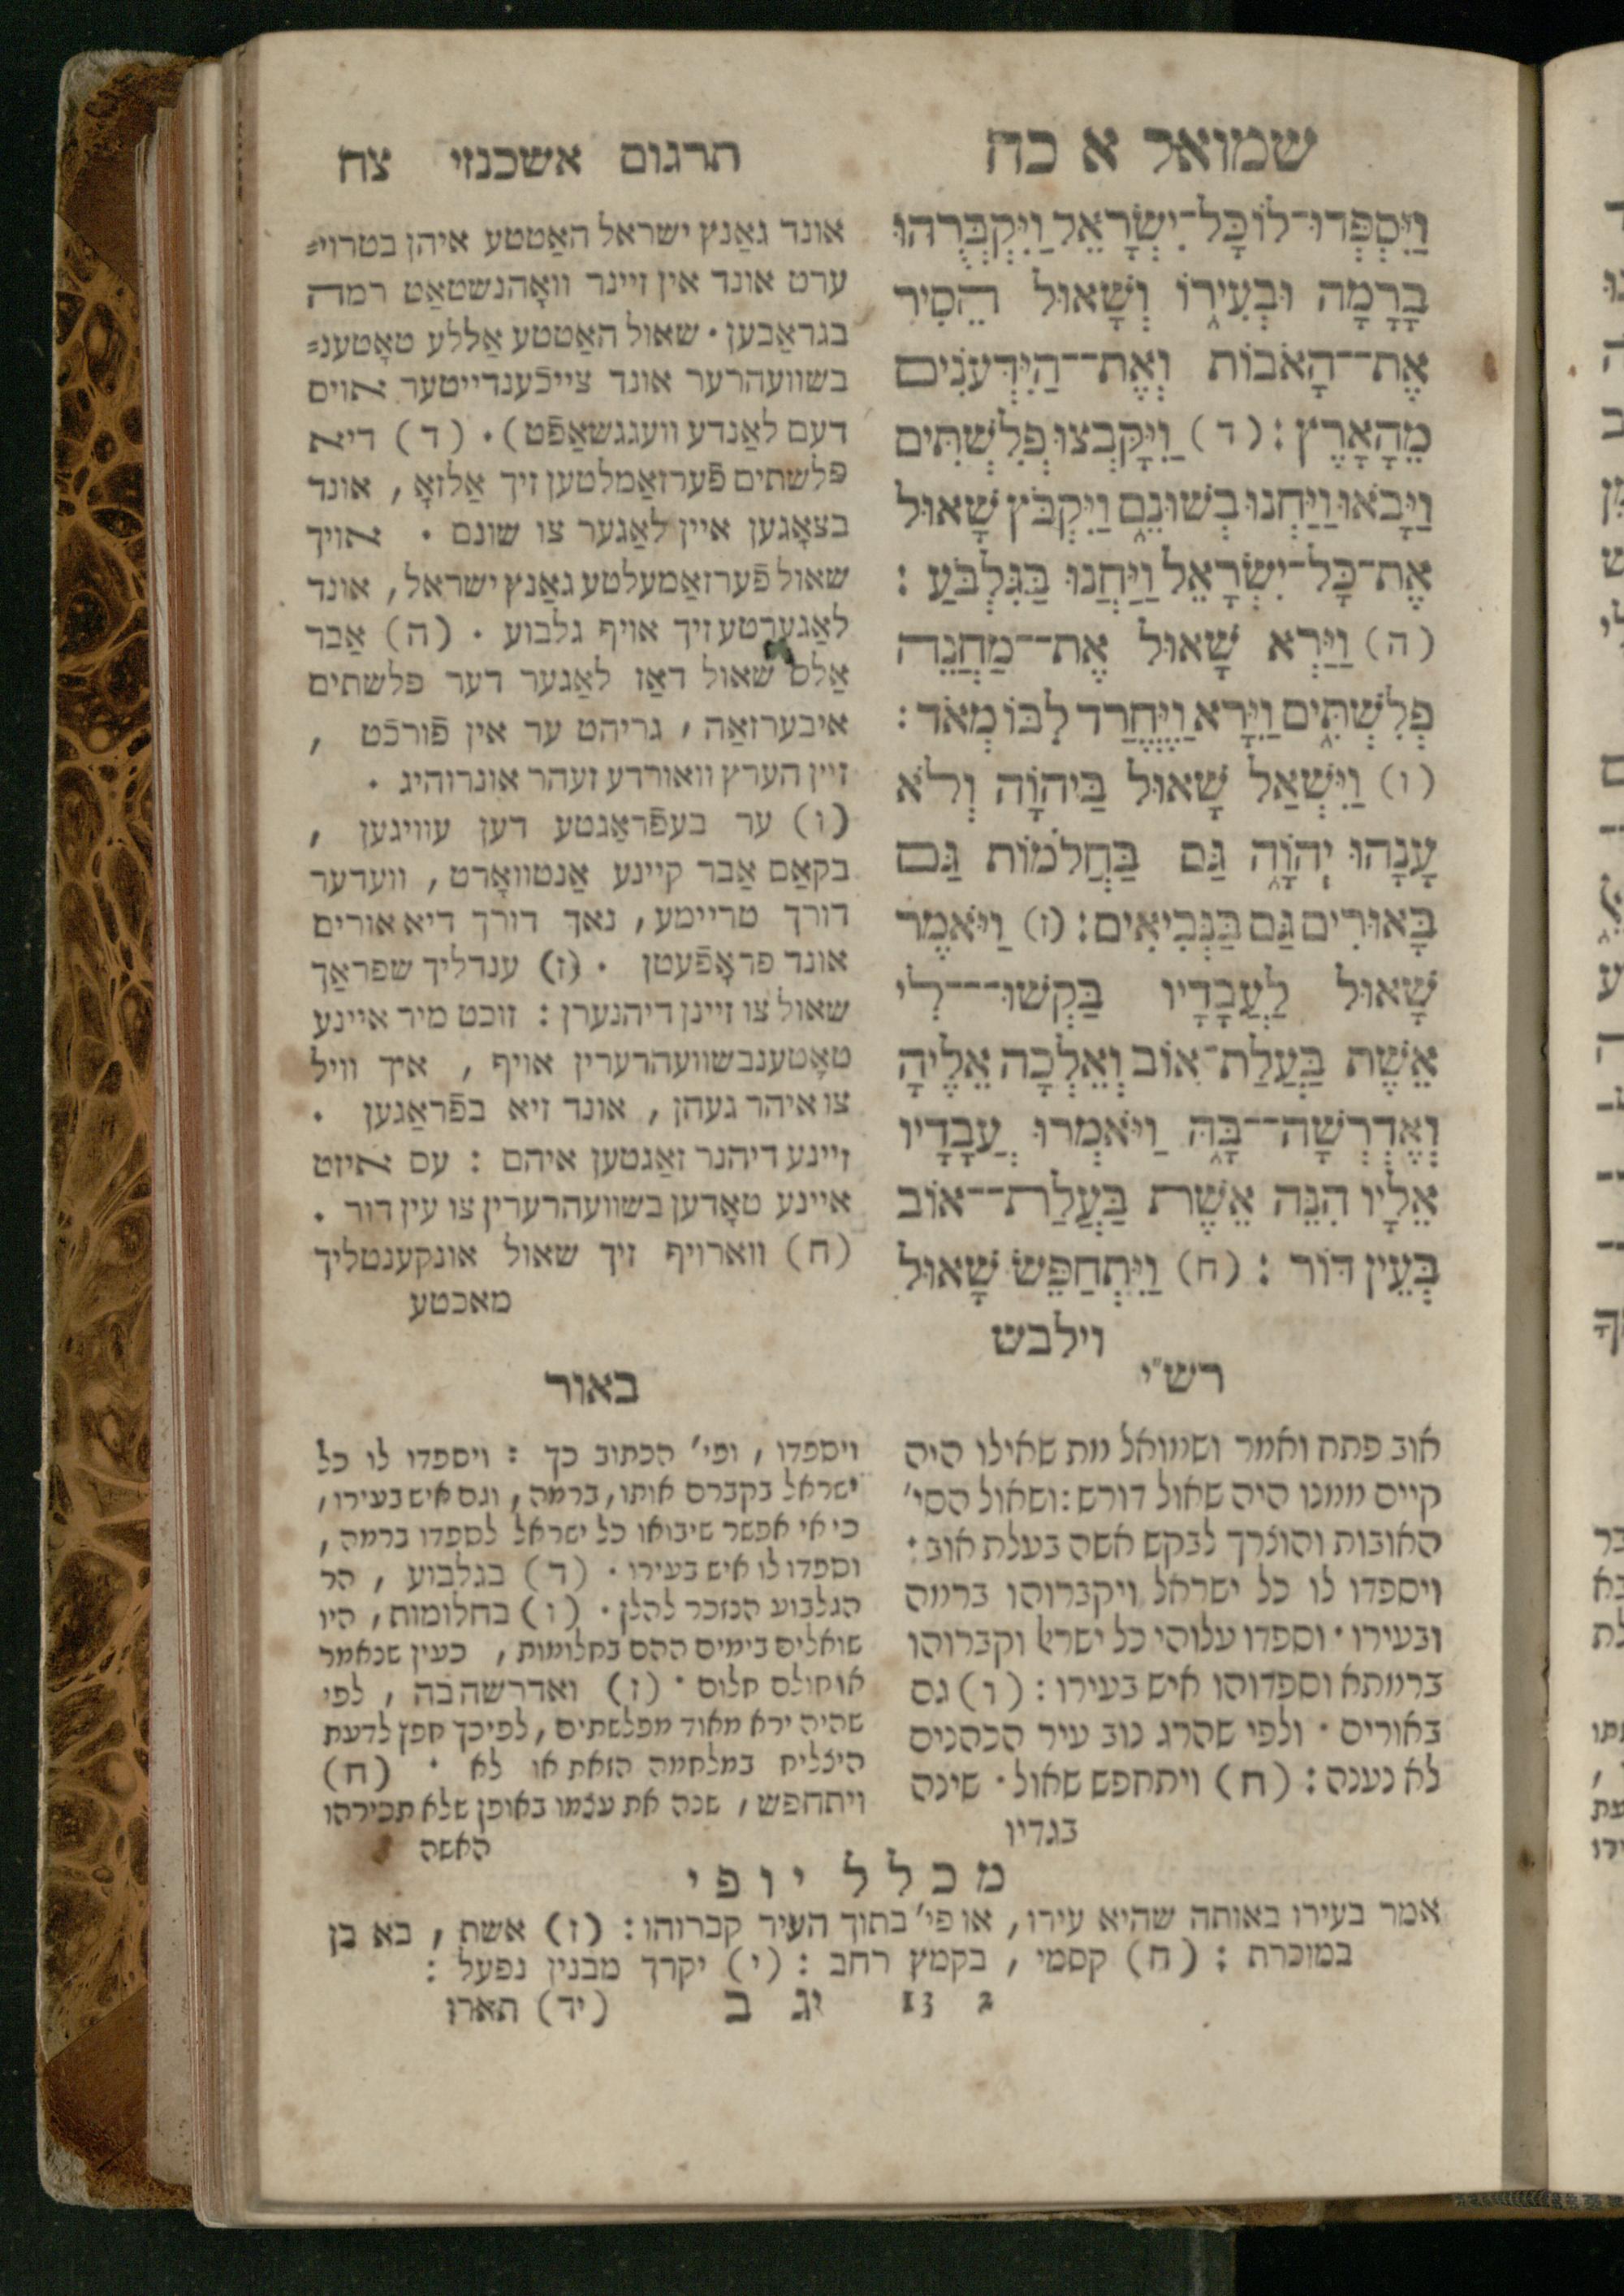 שמואל א כח
וַיִּסְפְּדוּ־לוֹ כָּל־יִשְׂרָאֵל וַיִּקְבְּרֻהוּ
בָרָמָה וּבְעִירוֹ וְשָׁאוּל הֵסִיר
אֶת־־הָאֹבוֹת וְאֶת־־הַיִּדְּעֹנִים
מֵהָאָרֶץ : (ד) וַיִּקָּבְצוּ פְלִשְׁתִּים
וַיָּבֹאוּ וַיַּחֲנוּ בְשׁוּנֵם וַיִּקְבֹּץ שָׁאוּל
אֶת־כָּל־יִשְׂרָאֵל וַיַּחֲנוּ בַּגִּלְבֹּעַ :
(ה) וַיַּרְא שָׁאוּל אֶת־־מַחֲנֵה
פְלִשְׁתִּים וַיִּרָא וַיֶּחֱרַד לִבּוֹ מְאֹד :
(ו) וַיִּשְׁאַל שָׁאוּל בַּיהוָה וְלֹא
עָנָהוּ יְהוָה גַּם בַּחֲלֹמוֹת גַּם
בָּאוּרִים גַּם בַּנְּבִיאִים : (ז) וַיֹּאמֶר
שָׁאוּל לַעֲבָדָיו בַּקְּשׁוּ־־־לִי
אֵשֶׁת בַּעֲלַת־אוֹב וְאֵלְכָה אֵלֶיהָ
וְאֶדְרְשָׁה־־בָּהּ וַיֹּאמְרוּ עֲבָדָיו
אֵלָיו הִנֵּה אֵשֶׁת בַּעֲלַת־־אוֹב
בְּעֵין דּוֹר : (ח) וַיִּתְחַפֵּשׂ שָׁאוּל
וילבש
תרגום אשכנזי צח
אונד גאַנץ ישראל האַטטע איהן בטרויי=
ערט אונד אין זיינר וואָהנשטאַט רמה
בגראַבען . שאול האַטטע אַללע טאָטענ=
בשוועהרער אונד צייכֿענדייטער אויס
דעם לאַנדע וועגגשאַפֿט) . (ד) דיא
פלשתים פֿערזאַמלטען זיך אַלזאָ , אונד
בצאָגען איין לאַגער צו שונם . אויך
שאול פֿערזאַמעלטע גאַנץ ישראל , אונד
לאַגערטע זיך אויף גלבוע . (ה) אַבר
אַלס שאול דאַז לאַגער דער פלשתים
איבערזאַה , גריהט ער אין פֿורכֿט ,
זיין הערץ וואורדע זעהר אונרוהיג .
(ו) ער בעפֿראַגטע דען עוויגען ,
בקאַם אַבר קיינע אַנטוואָרט , וועדער
דורך טריימע , נאך דורך דיא אורים
אונד פראָפֿעטן . (ז) ענדליך שפראַך
שאול צו זיינן דיהנערן : זוכט מיר איינע
טאָטענבשוועהרערין אויף , איך וויל
צו איהר געהן , אונד זיא בפֿראַגען .
זיינע דיהנר זאַגטען איהם : עס איזט
איינע טאָדען בשוועהרערין צו עין דור .
(ח) ווארויף זיך שאול אונקענטליך
מאכטע
רש"י
אוב פתח ואמר ושמואל מת שאילו היה
קיים ממנו היה שאול דורש : ושאול הסי'
האובות והוצרך לבקש אשה בעלת אוב :
ויספדו לו כל ישראל ויקברוהו ברמה
ובעירו . וספדו עלוהי כל ישרא' וקברוהו
ברמתא וספדוהו איש בעירו : (ו) גם
באורים . ולפי שהרג נוב עיר הכהנים
לא נענה : (ח) ויתחפש שאול . שינה
בגדיו
באור
ויספדו , ופי' הכתוב כך : ויספדו לו כל
ישראל בקברם אותו , ברמה , וגם איש בעירו ,
כי אי אפשר שיבואו כל ישראל לספדו ברמה ,
וספדו לו איש בעירו . (ד) בגלבוע , הר
הגלבוע הנזכר להלן . (ו) בחלומות , היו
שואלים בימים ההם בחלומות , כעין שנאמר
או חולם חלום . (ז) ואדרשה בה , לפי
שהיה ירא מאוד מפלשתים , לפיכך חפץ לדעת
היצליח במלחמה הזאת או לא . (ח)
ויתחפש , שנה את עצמו באופן שלא תכירהו
האשה
מכלל יופי
אמר בעירו באותה שהיא עירו , או פי' בתוך העיר קברוהו : (ז) אשת , בא בן
במוכרת : (ח) קסמי , בקמץ רחב : (י) יקרך מבנין נפעל :
2 13 יג ב (יד) תארו